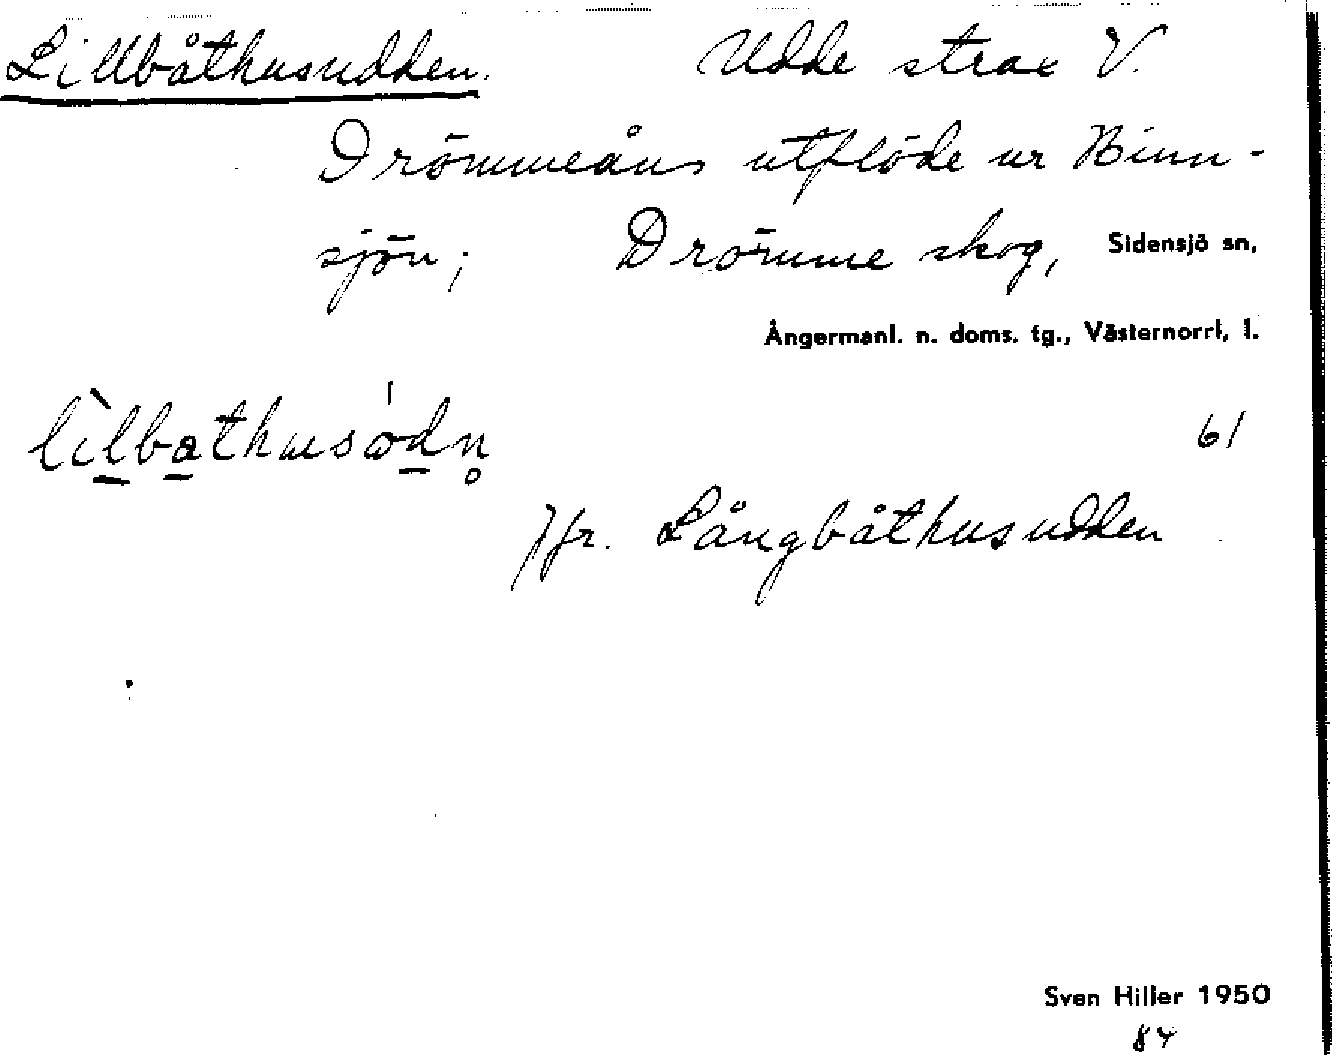 Lillbåthusudden. Udde strax V.
Drömmeåns utflöde ur Binn-
sjön; Drömme skog, Sidensjö sn,
Ångermanl. n. doms. tg., Västernorrl. l.
61
Jfr. Långbåthusudden
Sven Hiller 1950
84